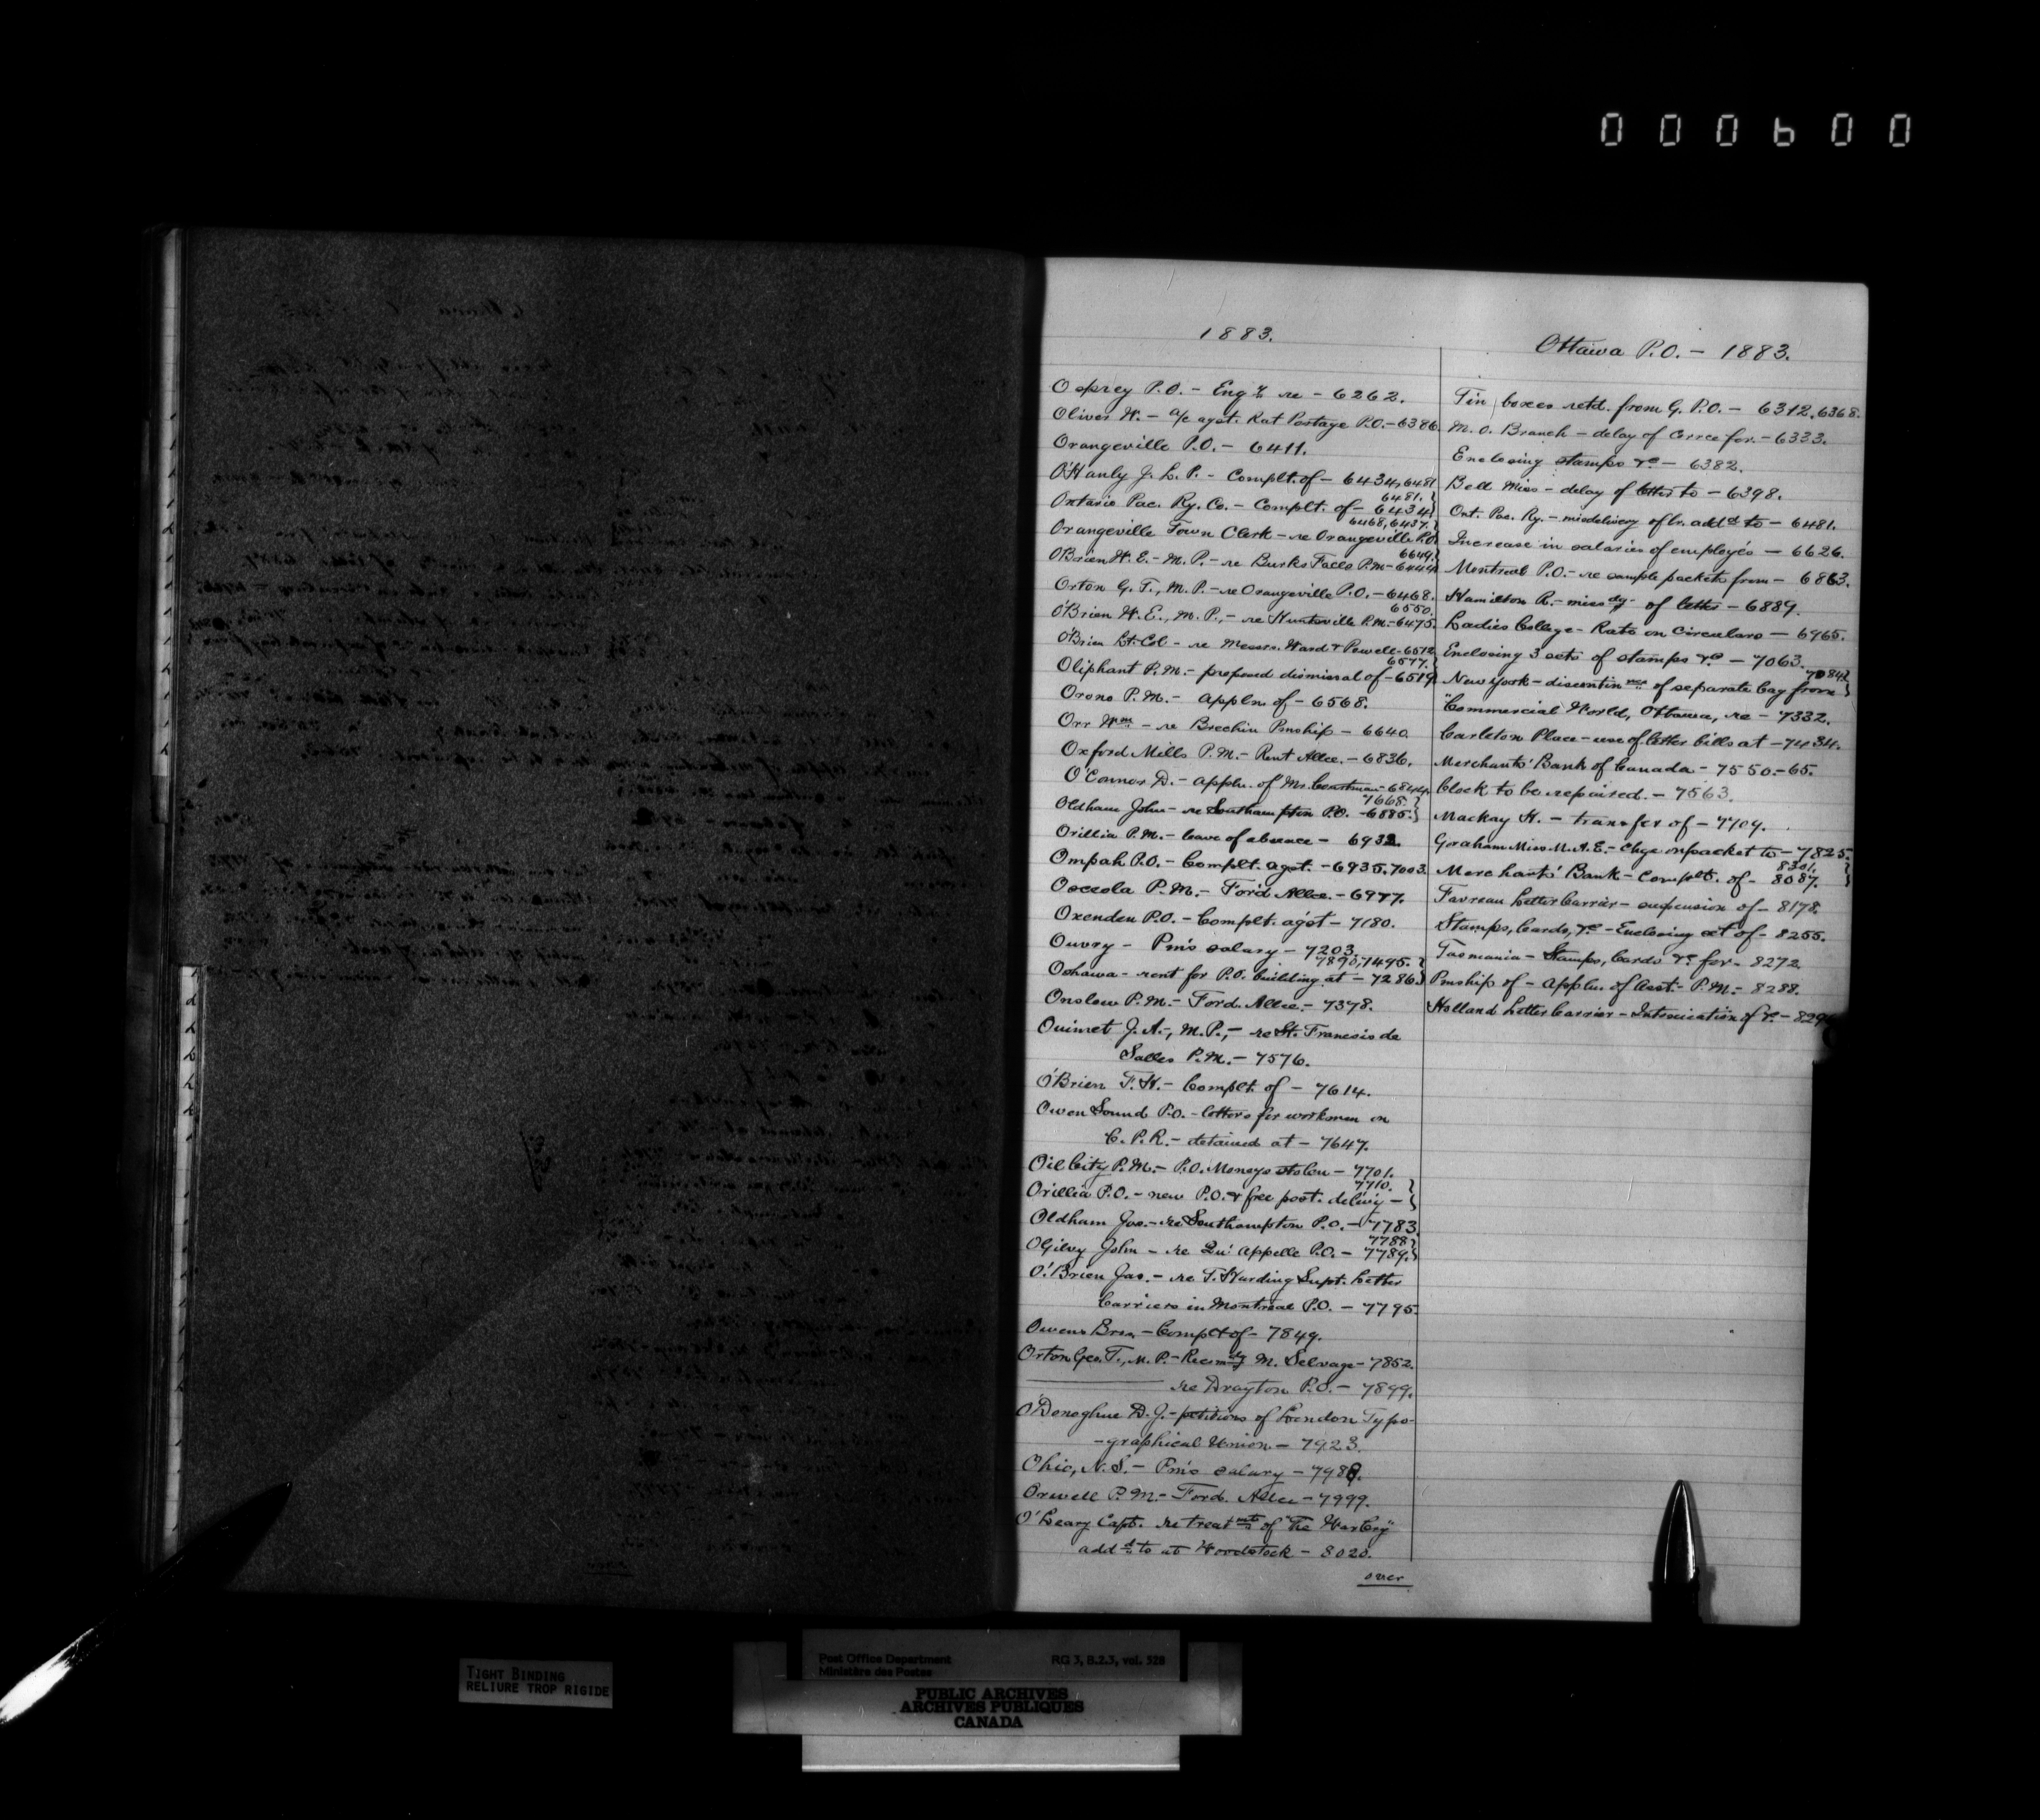 000600
1883.
Osprey P.O. - Engy re - 6262.
Oliver W. - a/c agst. Rat Portage P.O. - 6386
Orangeville P.O. - 6411.
O'Hanly J. L. P. - Complt. of - 6434, 6481
6481.
Ontario Pac. Ry. Co. - Complt. of - 6434
6468, 6437.
Orangeville Town Clerk - re Orangeville P.O.
6649.
O'Brien W. E. - M. P. - re Burks Falls P.M. - 6444
Orton G. T., M. P. - re Orangeville P.O. - 6468.
6550.
O'Brien W. E., M. P., - re Huntsville P.M. - 6475.
O'Brien Lt-Col - re Messrs. Ward & Powell - 6512
6577.
Oliphant P.M. - proposed dismissal of - 6519
Orono P.M. - Appln. of - 6568.
Orr Wm - re Brechin Pmship - 6640
Oxford Mills P.M. - Rent Allce. - 6836.
O'Connor D. - appln. of Mr. - 6844.
7668.
Oldham John - re Southampton P.O. - 6885.
Orillia P.M. - leave of absence - 6932.
Ompah P.O. - Complt. agst. - 6935, 7003.
Osceola P.M. - For'd Allce. - 6977.
Oxenden P.O. - Complt. agst - 7180.
Ouvry - Pm's salary - 7203.
7890, 7495.
Oshawa - rent for P.O. building at - 7286
Onslow P.M. - Ford. Allce. - 7378.
Ouimet J. A., M. P., - re St. Francis de
Salles P.M. - 7576.
O'Brien F. H. - Complt. of - 7614.
Owen Sound P.O. - letters for workmen on
C. P. R. - detained at - 7647.
Oil City P.M. - P.O. Moneys stolen - 7701.
7710.
Orillia P.O. - new P.O. & free post. delivy -
Oldham Jos. - re Southampton P.O. - 7783
7788
OGilvy John - re Qu'Appelle P.O. - 7789.
O'Brien Jas. - re T. Harding Supt. Letter
Carriers in Montreal P.O. - 7795.
Owens Bros. - Complt of - 7849.
Orton Geo. T., M. P. - Recomdg M. Selvage - 7852.
re Drayton P.O. - 7899.
O'Donoghue D. J. - petitions of London Typo-
-graphical Union. - 7923.
Ohio, N. S. - Pm's salary - 7988.
Orwell P.M. - Ford. Allce - 7999.
O'Leary Capt. re treatmt of "The War Cry"
addd to at Woodstock - 8020.
over
Ottawa P.O. - 1883.
Tin boxes retd. from G. P.O. - 6312, 6368.
M. O. Branch - delay of corrce for. - 6333.
Enclosing stamps &c - 6382.
Bell Miss - delay of letter to - 6398.
Ont. Pac. Ry. - misdelivery of lr. addd to - 6481.
Increase in salaries of employés - 6626.
Montreal P.O. - re sample packets from - 6863.
Hamilton R. - missdg. of letter - 6889.
Ladies College - Rate on circulars - 6965.
Enclosing 3 sets of stamps &c - 7063.
7084
New York - discontinnce of separate bag from
"Commercial World, Ottawa, re - 7332.
Carleton Place - use of letter bills at - 7434.
Merchants' Bank of Canada - 7550.-65.
Clock to be repaired. - 7563.
Mackay H. - transfer of - 7709.
Graham Miss M. A. E. - Chge on packet to - 7825.
8301.
Merchants' Bank - Complt. of - 8087.
Favreau Letter Carrier - suspension of - 8178.
Stamps, Cards, &c - Enclosing set of - 8255.
Tasmania - Stamps, Cards &c for - 8272
Pmship of - Appln. of Asst. P.M. - 8288.
Holland Letter Carrier - Intoxication of &c -
TIGHT BINDING
RELIURE TROP RIGIDE
Post Office Department RG 3, B.2.3, vol. 528
Ministère des Postes
PUBLIC ARCHIVES
ARCHIVES PUBLIQUES
CANADA